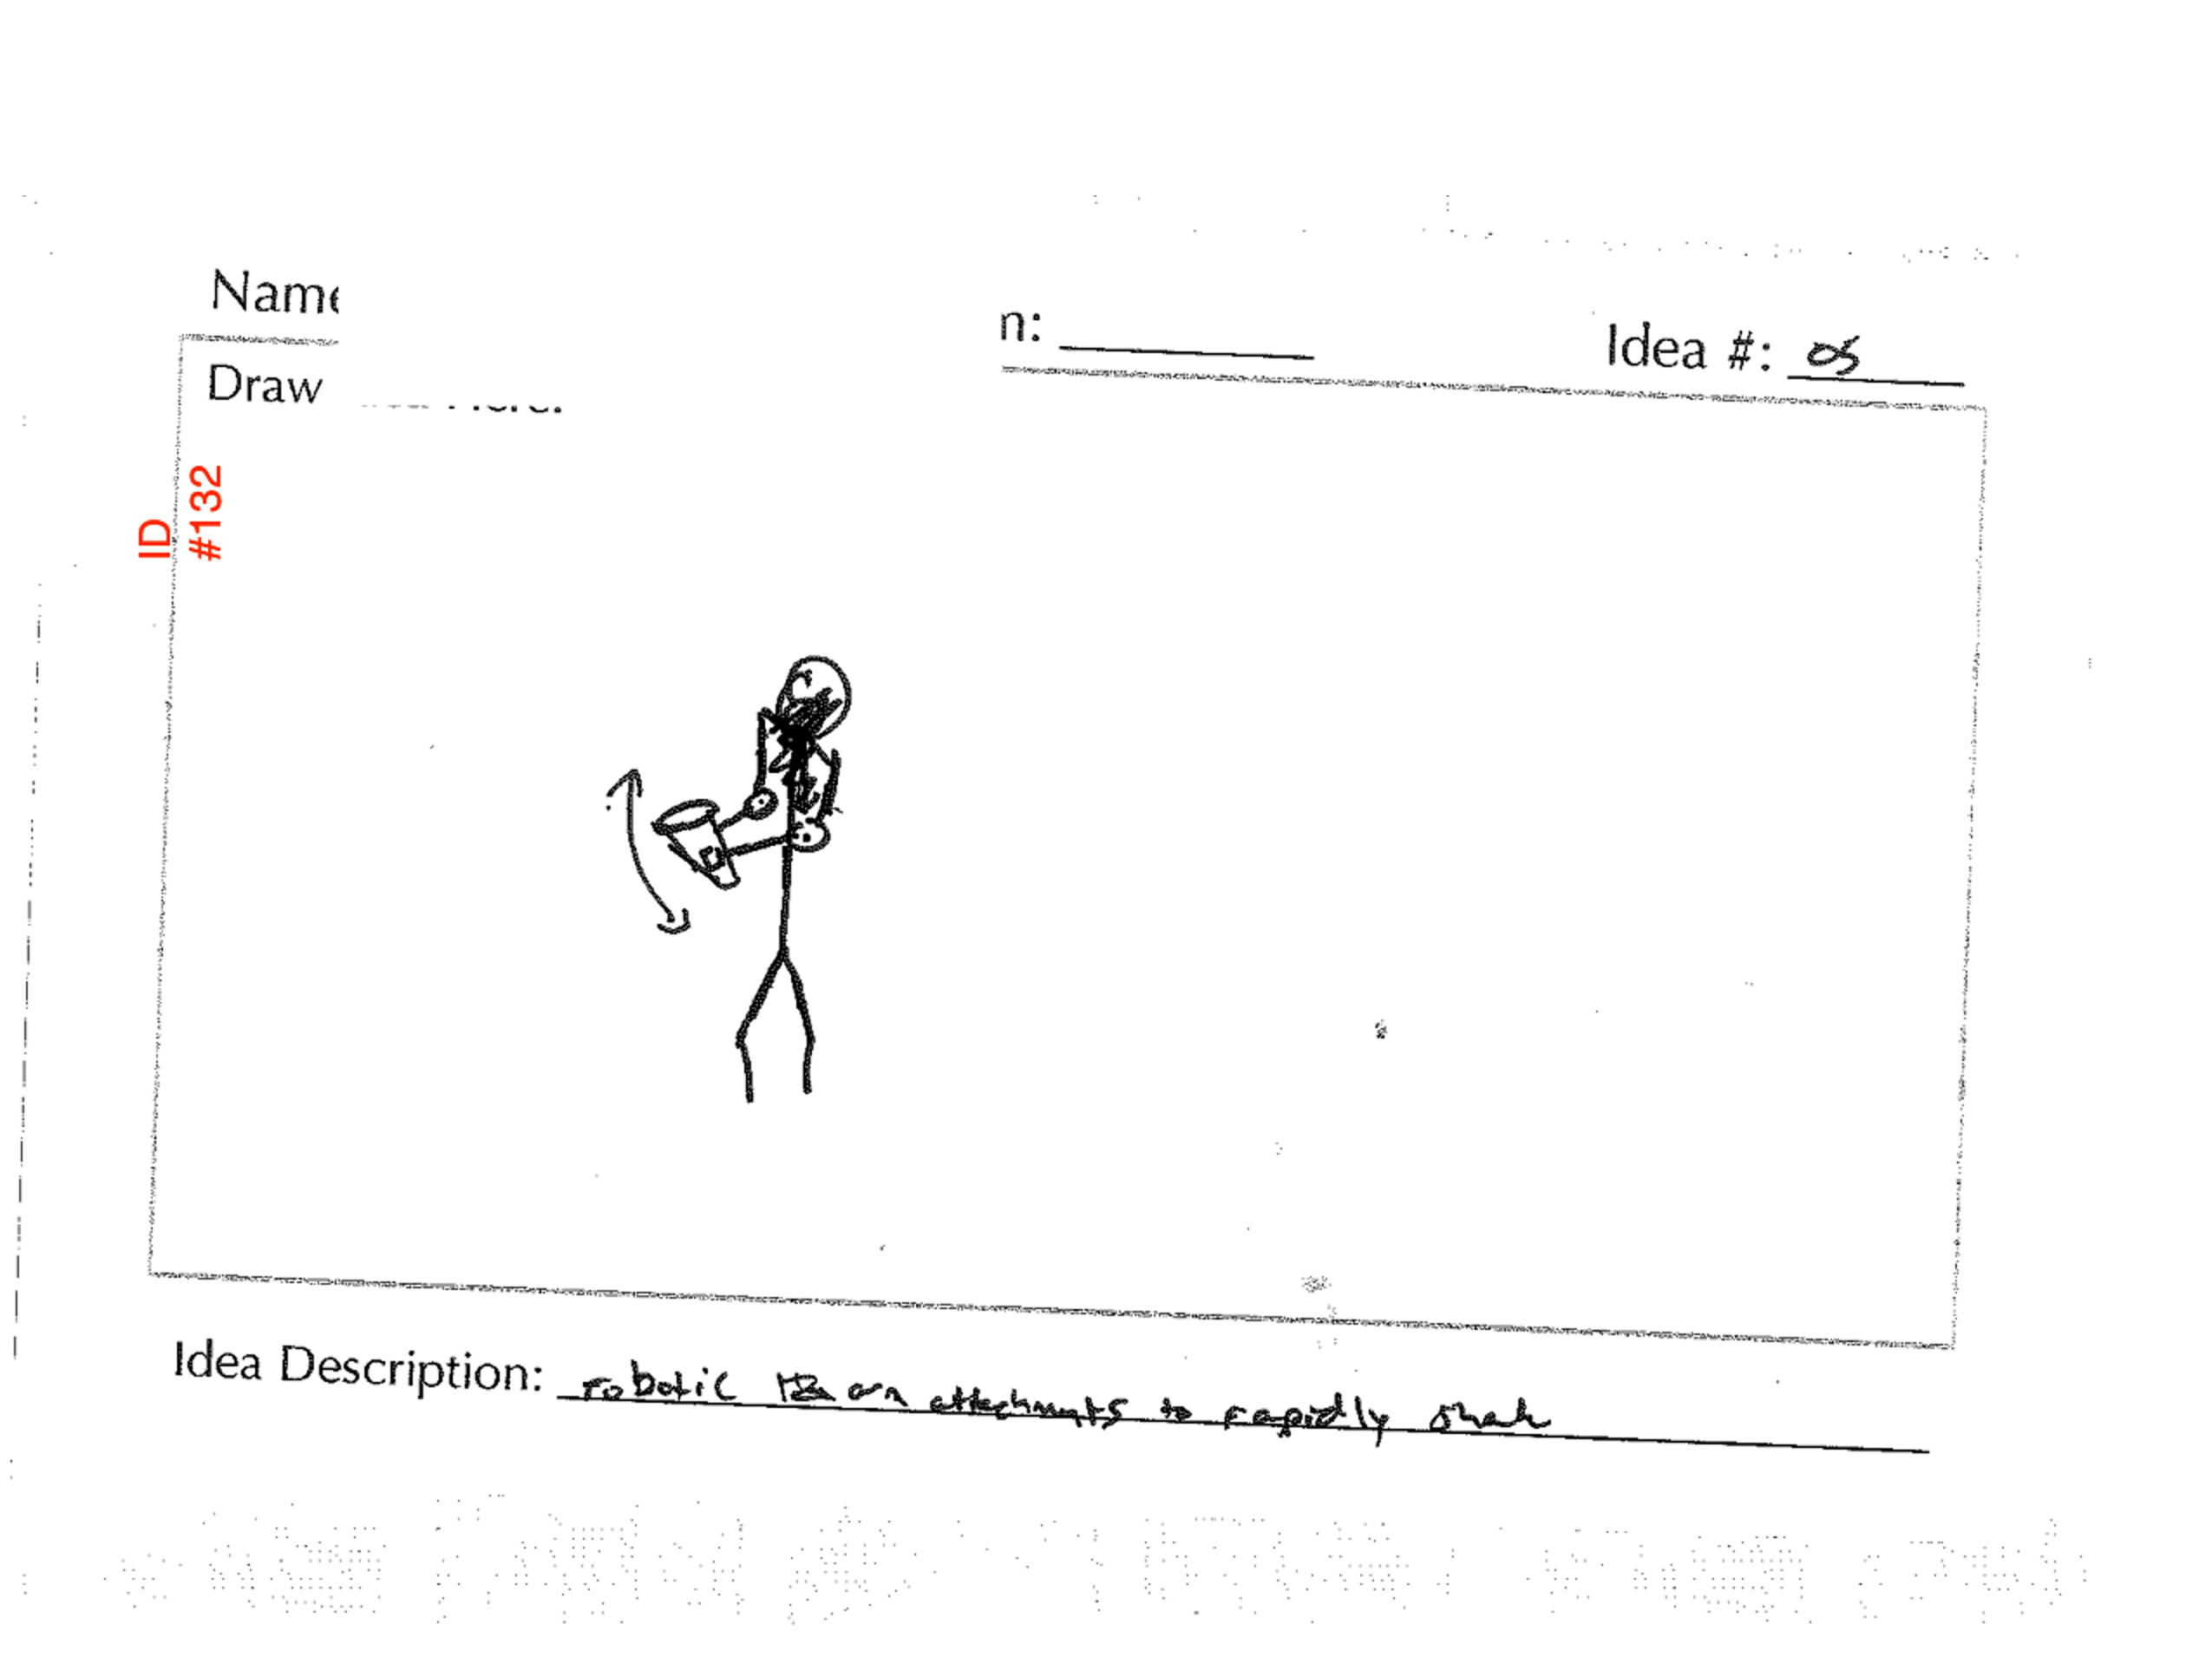 Name
n:
Idea #: 05
Draw
ID
#132
Idea Description: robotic arm attachments to rapidly shake